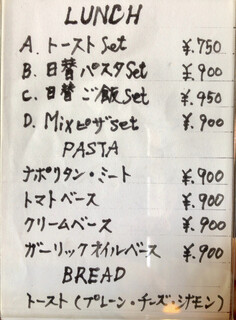 LUNCH
A. トーストSet ¥.750
B. 日替パスタSet ¥.900
C. 日替ご飯Set ¥.950
D. Mixピザset ¥.900
PASTA
ナポリタン・ミート ¥.900
トマトベース ¥.900
クリームベース ¥.900
ガーリックオイルベース ¥.900
BREAD
トースト(プレーン・チーズ・シナモン)